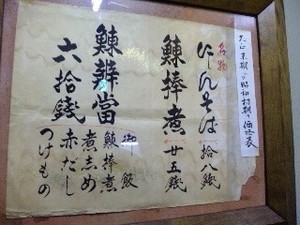 大正末期ゟ昭和初期の価格表
名物
にしんそば 拾八銭
鰊棒煮 廿五銭
鰊辨當 六拾銭
御飯
鰊棒煮
煮しめ
赤だし
つけもの